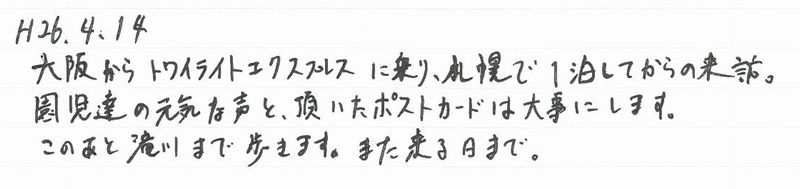 H26.4.14
大阪からトワイライトエクスプレスに乗り、札幌で1泊してからの来訪。
園児達の元気な声と、頂いたポストカードは大事にします。
このあと滝川まで歩きます。また来る日まで。